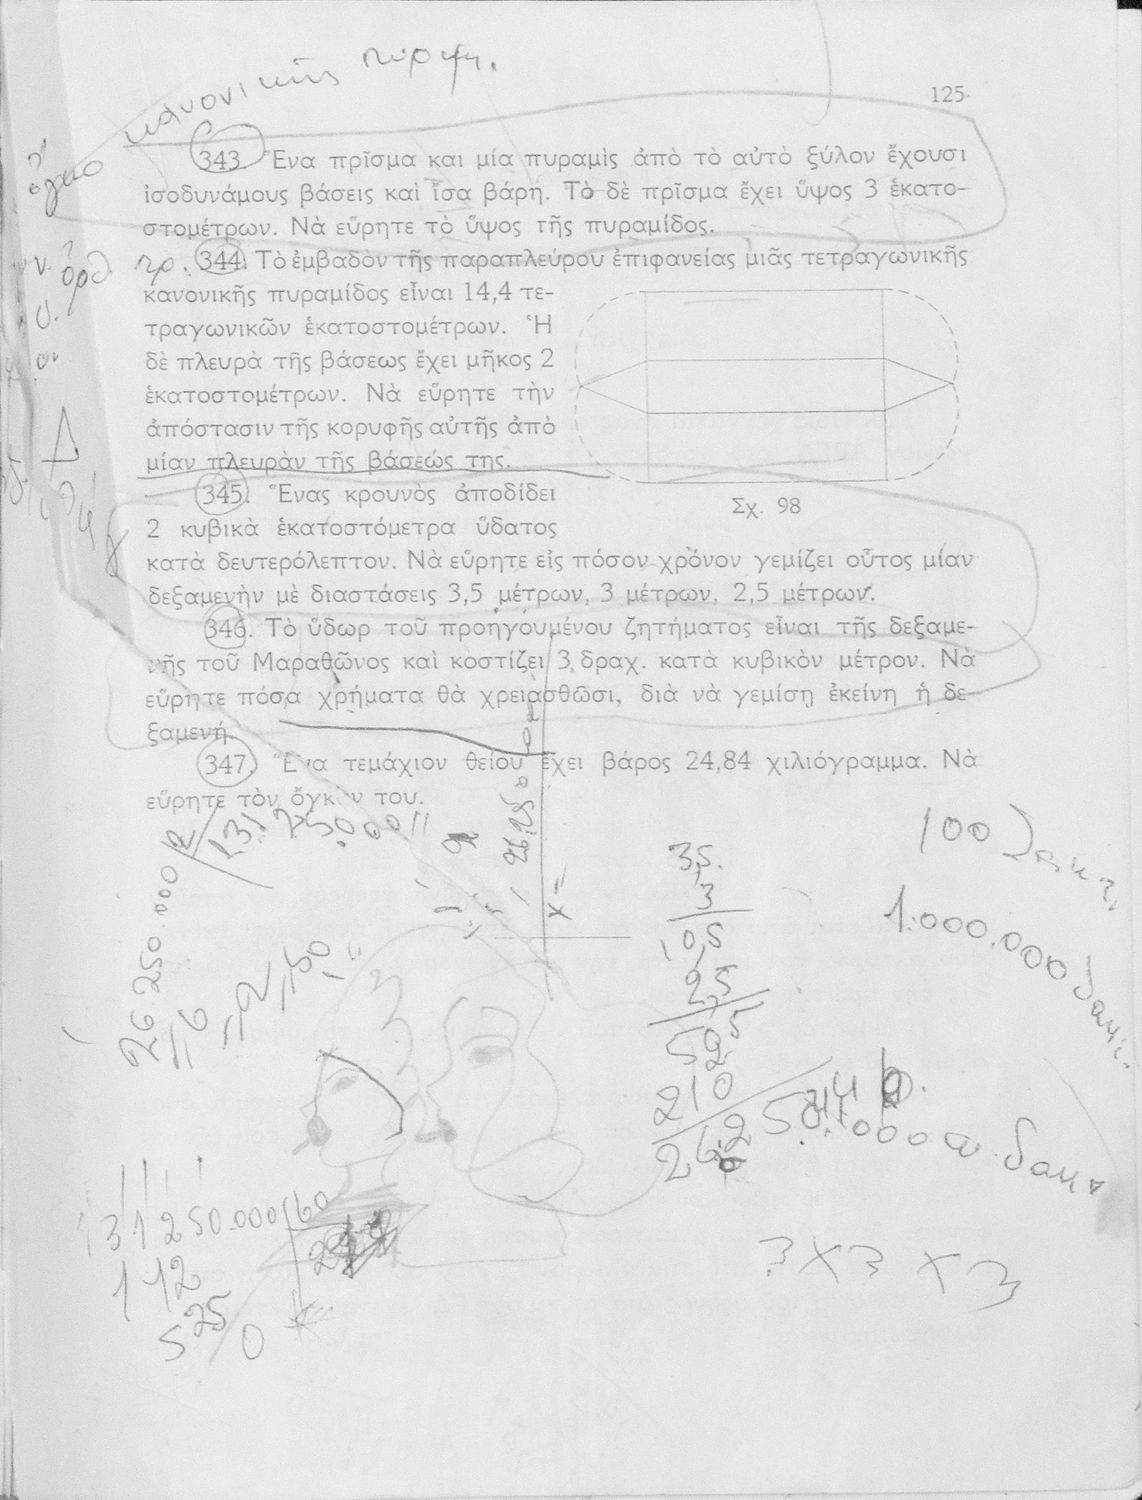 κανονικῆς πυραμ.
125
343. Ἕνα πρῖσμα και μία πυραμὶς ἀπὸ τὸ αὐτὸ ξύλον ἔχουσι
ἰσοδυνάμους βάσεις καὶ ἴσα βάρη. Τὸ δὲ πρῖσμα ἔχει ὕψος 3 ἑκατο-
στομέτρων. Νὰ εὕρητε τὸ ὕψος τῆς πυραμίδος.
344. Τὸ ἐμβαδὸν τῆς παραπλεύρου ἐπιφανείας μιᾶς τετραγωνικῆς
κανονικῆς πυραμίδος εἶναι 14,4 τε-
τραγωνικῶν ἑκατοστομέτρων. Ἡ
δὲ πλευρὰ τῆς βάσεως ἔχει μῆκος 2
ἑκατοστομέτρων. Νὰ εὕρητε τὴν
ἀπόστασιν τῆς κορυφῆς αὐτῆς ἀπὸ
μίαν πλευρὰν τῆς βάσεώς της.
Σχ. 98
345. Ἕνας κρουνὸς ἀποδίδει
2 κυβικὰ ἑκατοστόμετρα ὕδατος
κατὰ δευτερόλεπτον. Νὰ εὕρητε εἰς πόσον χρόνον γεμίζει οὗτος μίαν
δεξαμενὴν μὲ διαστάσεις 3,5 μέτρων, 3 μέτρων, 2,5 μέτρων.
346. Τὸ ὕδωρ τοῦ προηγουμένου ζητήματος εἶναι τῆς δεξαμε-
νῆς τοῦ Μαραθῶνος καὶ κοστίζει 3 δραχ. κατὰ κυβικὸν μέτρον. Νὰ
εὕρητε πόσα χρήματα θὰ χρειασθῶσι, διὰ νὰ γεμίσῃ ἐκείνη ἡ δε-
ξαμενή.
347. Ἕνα τεμάχιον θείου ἔχει βάρος 24,84 χιλιόγραμμα. Νὰ
εὕρητε τὸν ὄγκον του.
26.250.000
x=
3,5
3
10,5
2,5
525
210
100
1.000.000
131250.000 60
112
525
0
3 x 3 x 3